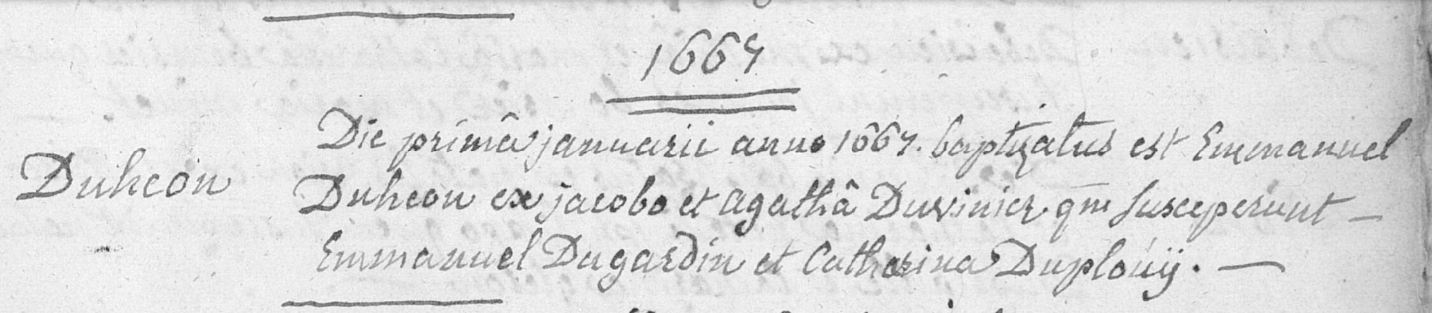 1667
Die primâ januarii anno 1667. baptizatus est Emmanuel
Duheon
Duheon ex jacobo et agathâ Duvinier qm susceperunt —
Emmanuel Dugardin et Catharina Duplouÿ. —